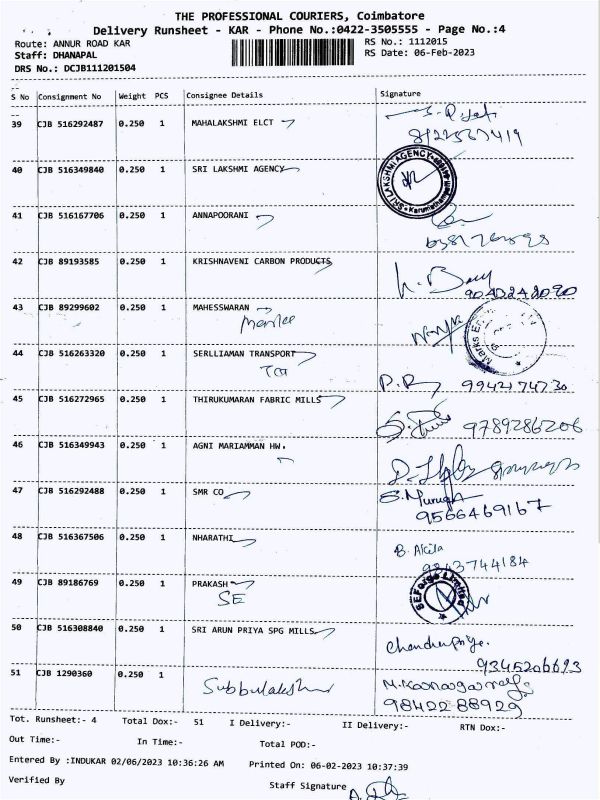 THE PROFESSIONAL COURIERS, Coimbatore
Delivery Runsheet - KAR - Phone No.:0422-3505555 - Page No.:4
Route: ANNUR ROAD KAR RS No.: 1112015
Staff: DHANAPAL RS Date: 06-Feb-2023
DRS No.: DCJB111201504
S No Consignment No Weight PCS Consignee Details Signature
39 CJB 516292487 0.250 1 MAHALAKSHMI ELCT
40 CJB 516349840 0.250 1 SRI LAKSHMI AGENCY
SRI LAKSHMI AGENCY
41 CJB 516167706 0.250 1 ANNAPOORANI
42 CJB 89193585 0.250 1 KRISHNAVENI CARBON PRODUCTS
43 CJB 89299602 0.250 1 MAHESSWARAN
44 CJB 516263320 0.250 1 SERLLIAMAN TRANSPORT
P.R 9942174730
45 CJB 516272965 0.250 1 THIRUKUMARAN FABRIC MILLS
9789286206
46 CJB 516349943 0.250 1 AGNI MARIAMMAN HW.
47 CJB 516292488 0.250 1 SMR CO
S.Muruga
9566469167
48 CJB 516367506 0.250 1 NHARATHI
B. Akila
9843744184
49 CJB 89186769 0.250 1 PRAKASH
SE
SEForge Limited
50 CJB 516308840 0.250 1 SRI ARUN PRIYA SPG MILLS
Chandrapriya.
9345206693
51 CJB 1290360 0.250 1
Subbulakshmi
98422 88929
Tot. Runsheet:- 4 Total Dox:- 51 I Delivery:- II Delivery:- RTN Dox:-
Out Time:- In Time:- Total POD:-
Entered By :INDUKAR 02/06/2023 10:36:26 AM Printed On: 06-02-2023 10:37:39
Verified By Staff Signature